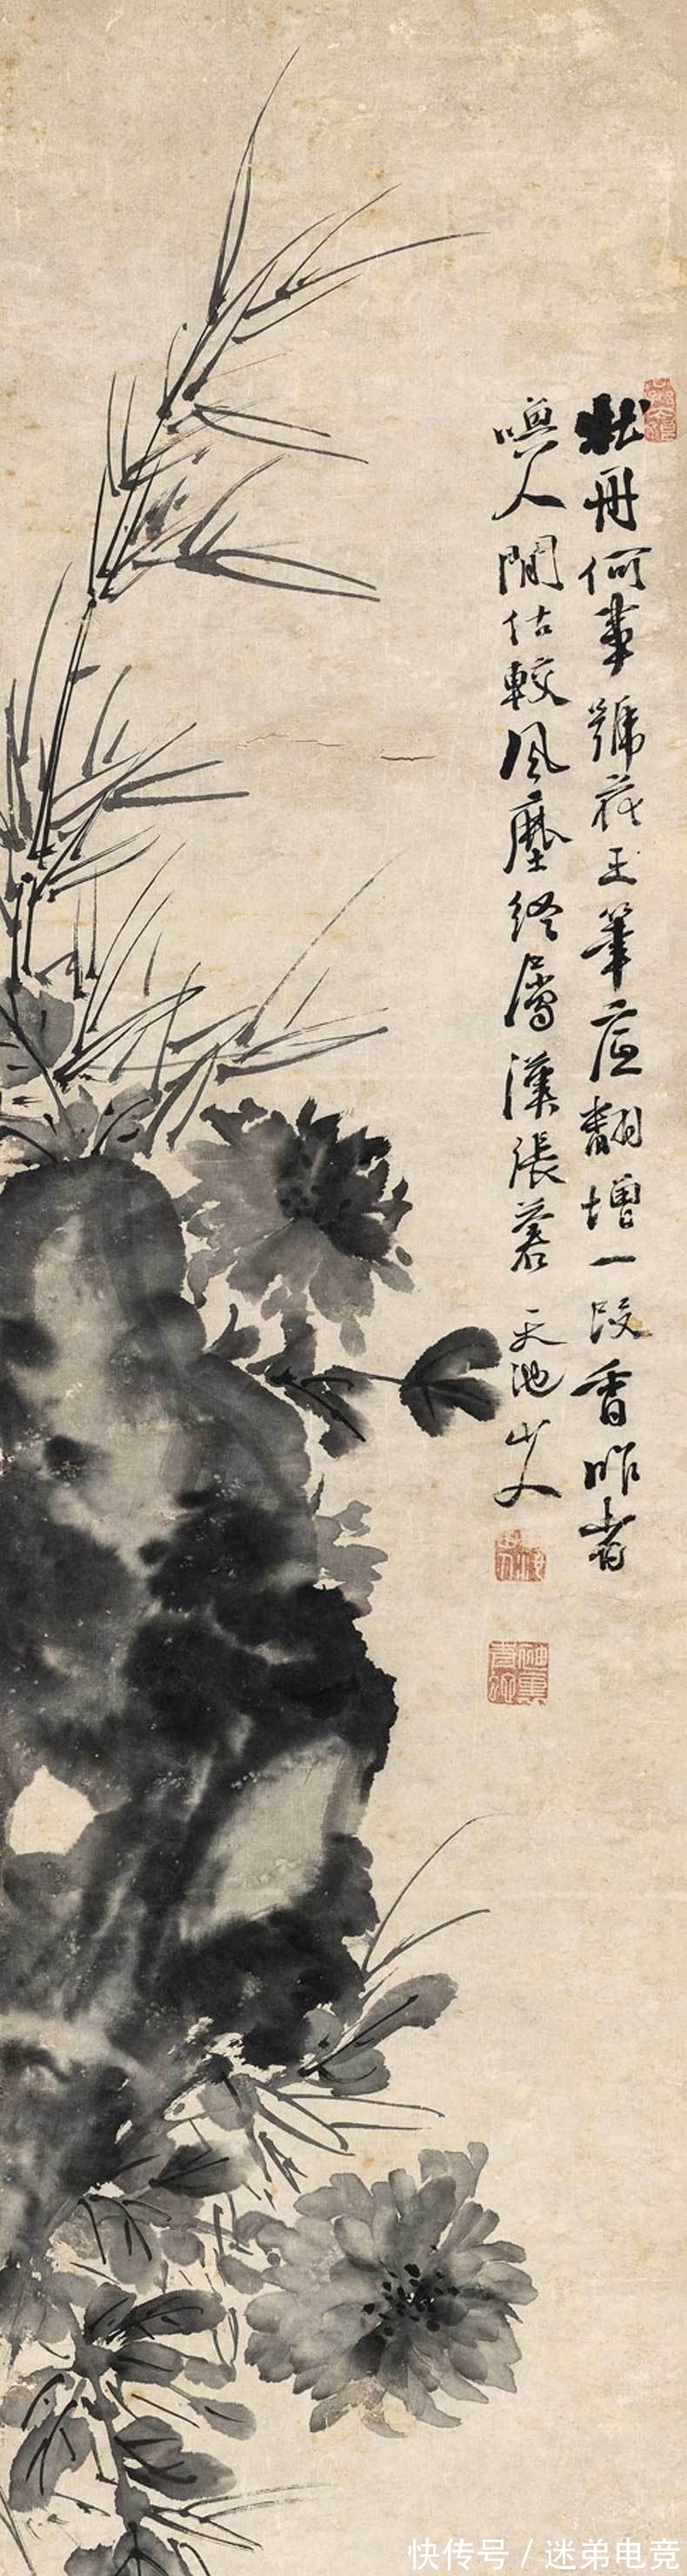 牡丹何事號花王筆底翻增一段香昨者
嗅人閒估較風塵終屬漢張蒼 天池山人
快传号 / 迷弟电竞